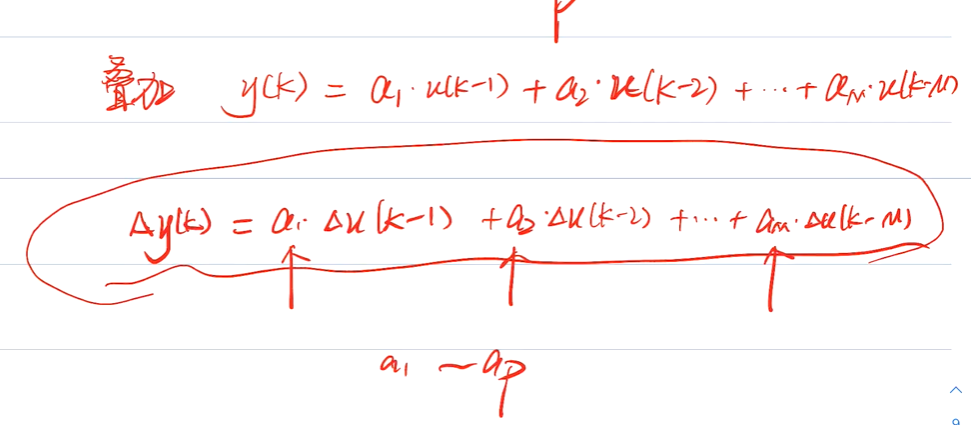 p
叠加 y(k) = a₁·u(k-1) + a₂·u(k-2) + ... + aₘ·u(k-M)
Δy(k) = a₁·Δu(k-1) + a₂·Δu(k-2) + ... + aₘ·Δu(k-M)
a₁ ~ aₚ
9